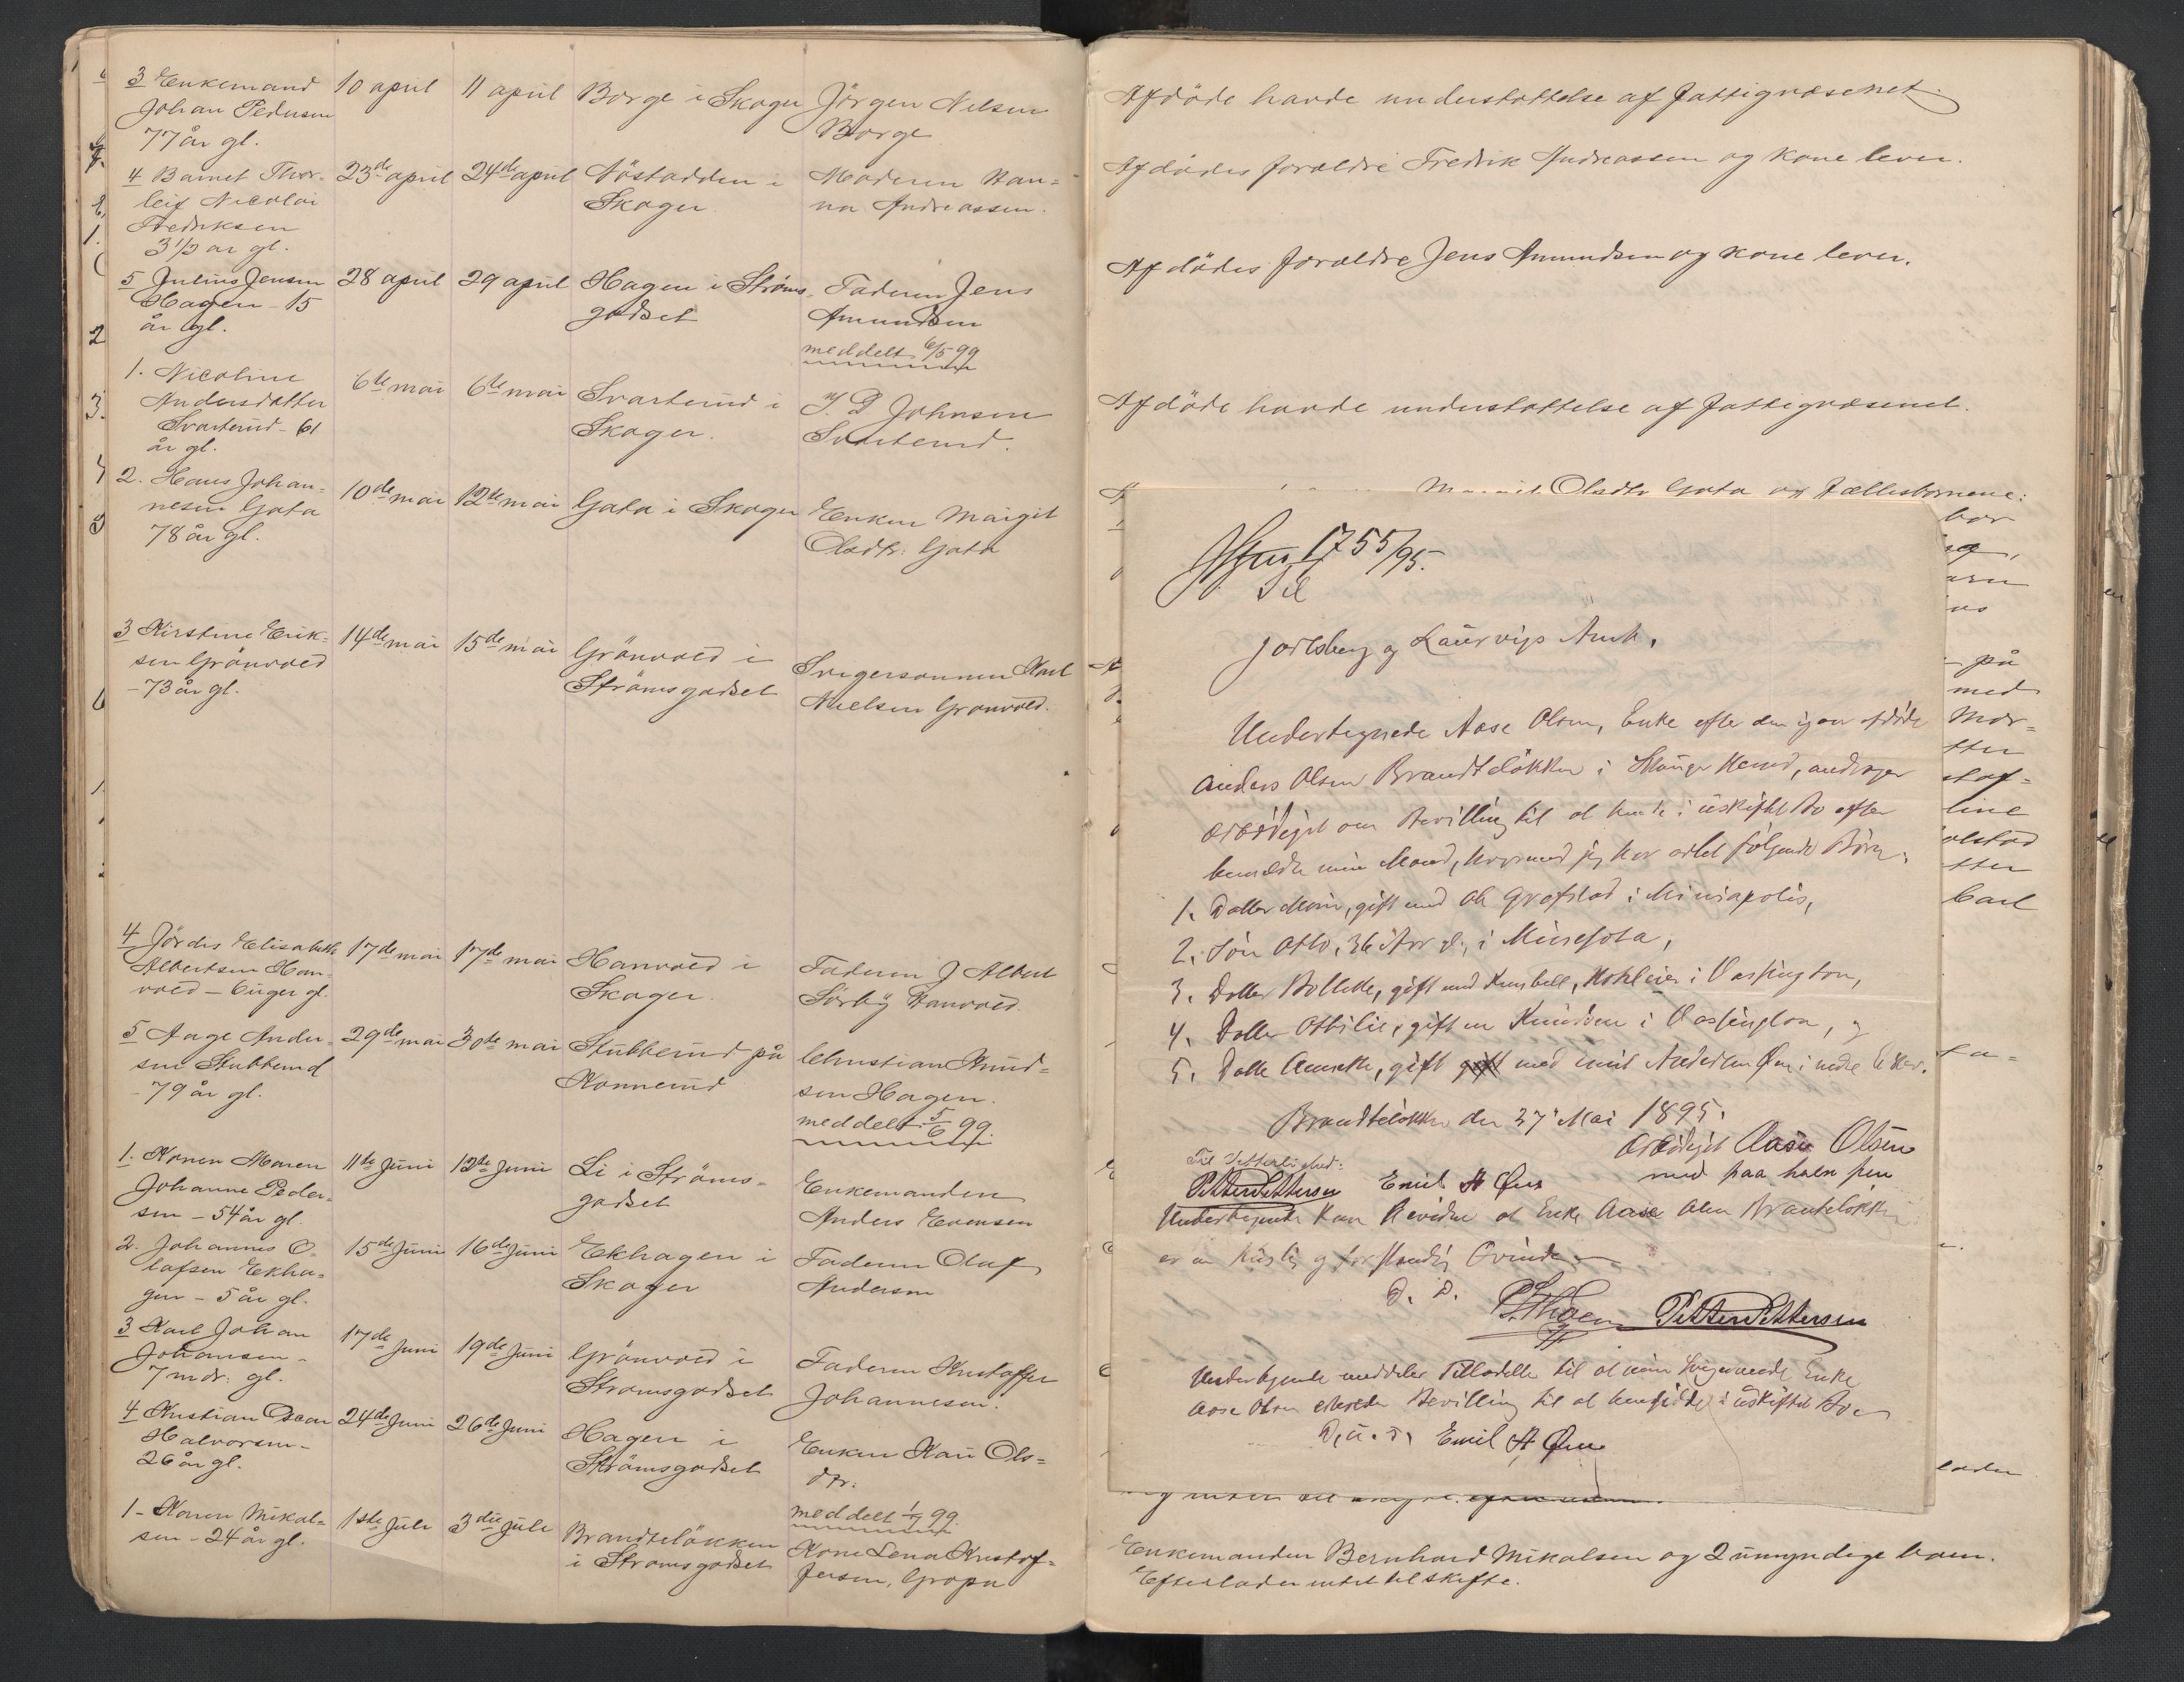 3 Enkemand
Johan Pedersen
77 år gl.
10 april
11 april
Borge i Skoger
Jörgen Nilsen
Borge
4 Barnet Thor-
leif Nicolai
Fredriksen
3 1/2 år gl.
23de april
24de april
Nöstodden i
Skoger
Moderen Han=
na Andreassen.
5 Julius Jensen
Hagen - 15
år gl.
28 april
29 april
Hagen i Ströms-
godset
Faderen Jens
Amundsen
meddelt 6/5 99
1. Nicoline
Andersdatter
Svarterud - 61
år gl.
6te mai
6te mai
Svarterud i
Skoger.
J. P Johnsen
Svarterud.
2. Hans Johan=
nesen Gata
78 år gl.
10de mai
12te mai
Gata i Skoger
Enken Margit
Olsdtr. Gata
3 Kirstine Erik-
sen Grönvold
- 73 år gl.
14de mai
15de mai
Grönvold i
Strömsgodset
Svigersönnen Karl
Nielsen Grönvold.
4 Jördis Elisabeth
Albertsen Han-
vold - 6 uger gl.
17de mai
17de mai
Hanvold i
Skoger.
Faderen J Albert
Sörby Hanvold.
5 Aage Ander-
sen Stubberud
- 79 år gl.
29de mai
30de mai
Stubberud på
Konnerud
Christian Knud=
sen Hagen.
meddelt 5/6 99
1. Konen Maren
Johanne Peder-
sen - 54 år gl.
11te Juni
12te Juni
Li i Ströms-
godset
Enkemanden
Anders Evensen
2. Johannes O-
lafsen Ekha=
gen - 5 år gl.
15de Juni
16de Juni
Ekhagen i
Skoger
Faderen Olaf
Andersen
3 Karl Johan
Johansen -
7 mdr: gl.
17de Juni
19de Juni
Grönvold i
Strömsgodset
Faderen Kristoffer
Johannesen.
4 Kristian Oscar
Halvorsen -
26 år gl.
24de Juni
26de Juni
Hagen i
Strömsgodset
Enken Kari Ols=
dtr.
meddelt 1/7 99
1 - Konen Mikal=
sen - 24 år gl.
1ste Juli
3die Juli
Brandtelökken
i Strömsgodset
Kone Lena Kristof=
fersen, Gropa
Afdöde havde understöttelse af fattigvæsenet.
Afdödes forældre Fredrik Andreassen og kone lever.
Afdödes forældre Jens Amundsen og kone lever.
Afdöde havde understöttelse af fattigvæsenet.
Olsdtr Gata og fællesbörnene:
1755/95.
Til
Jarlsberg og Laurvigs Amt.
Undertegnede Aase Olsen, Enke efter den igaar afdöde
Anders Olsen Brandtelökken i Skouger Herred, andrager
ærbödigst om Bevilling til at sidde i uskiftet Bo efter
bemeldte min Mand, hvormed jeg har avlet fölgende Börn.
1. Datter Marie, gift med Ole Grofstad i Miniapolis,
2. Sön Otto, 36 Aar gl, i Minesota,
3. Datter Bollette, gift med Kembell, Hotteier i Vassington,
4. Datter Ottilie, gift m Knudsen i Vassington, og
5. Datter Annette, gift med Emil Andersen Øen i nedre Eker.
Brandtelökken den 27' Mai 1895.
ærbödigst Aase Olsen
med paa holn pen
Til Vitterlighed:
Petter Pettersen Emil A Øen
Undertegnede kan bevidne at Enke Aase Olsen Brantelökken
er en huslig og forstandig Qvinde
D. S.
Petter Pettersen
Undertegnede meddeler Tilladelse til at min Svigermoder Enke
Aase Olsen erholder Bevilling til at hensidde i uskiftet Bo
D. u. s. Emil A Øen
bor
og,
på
med
Mar-
tter
line
tter
Carl
Enkemanden Bernhard Mikalsen og 2 umyndige barn.
Efterlader intet til skifte.